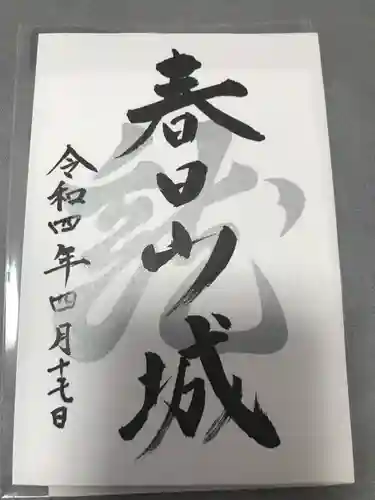 春日山城
令和四年四月十七日
龍